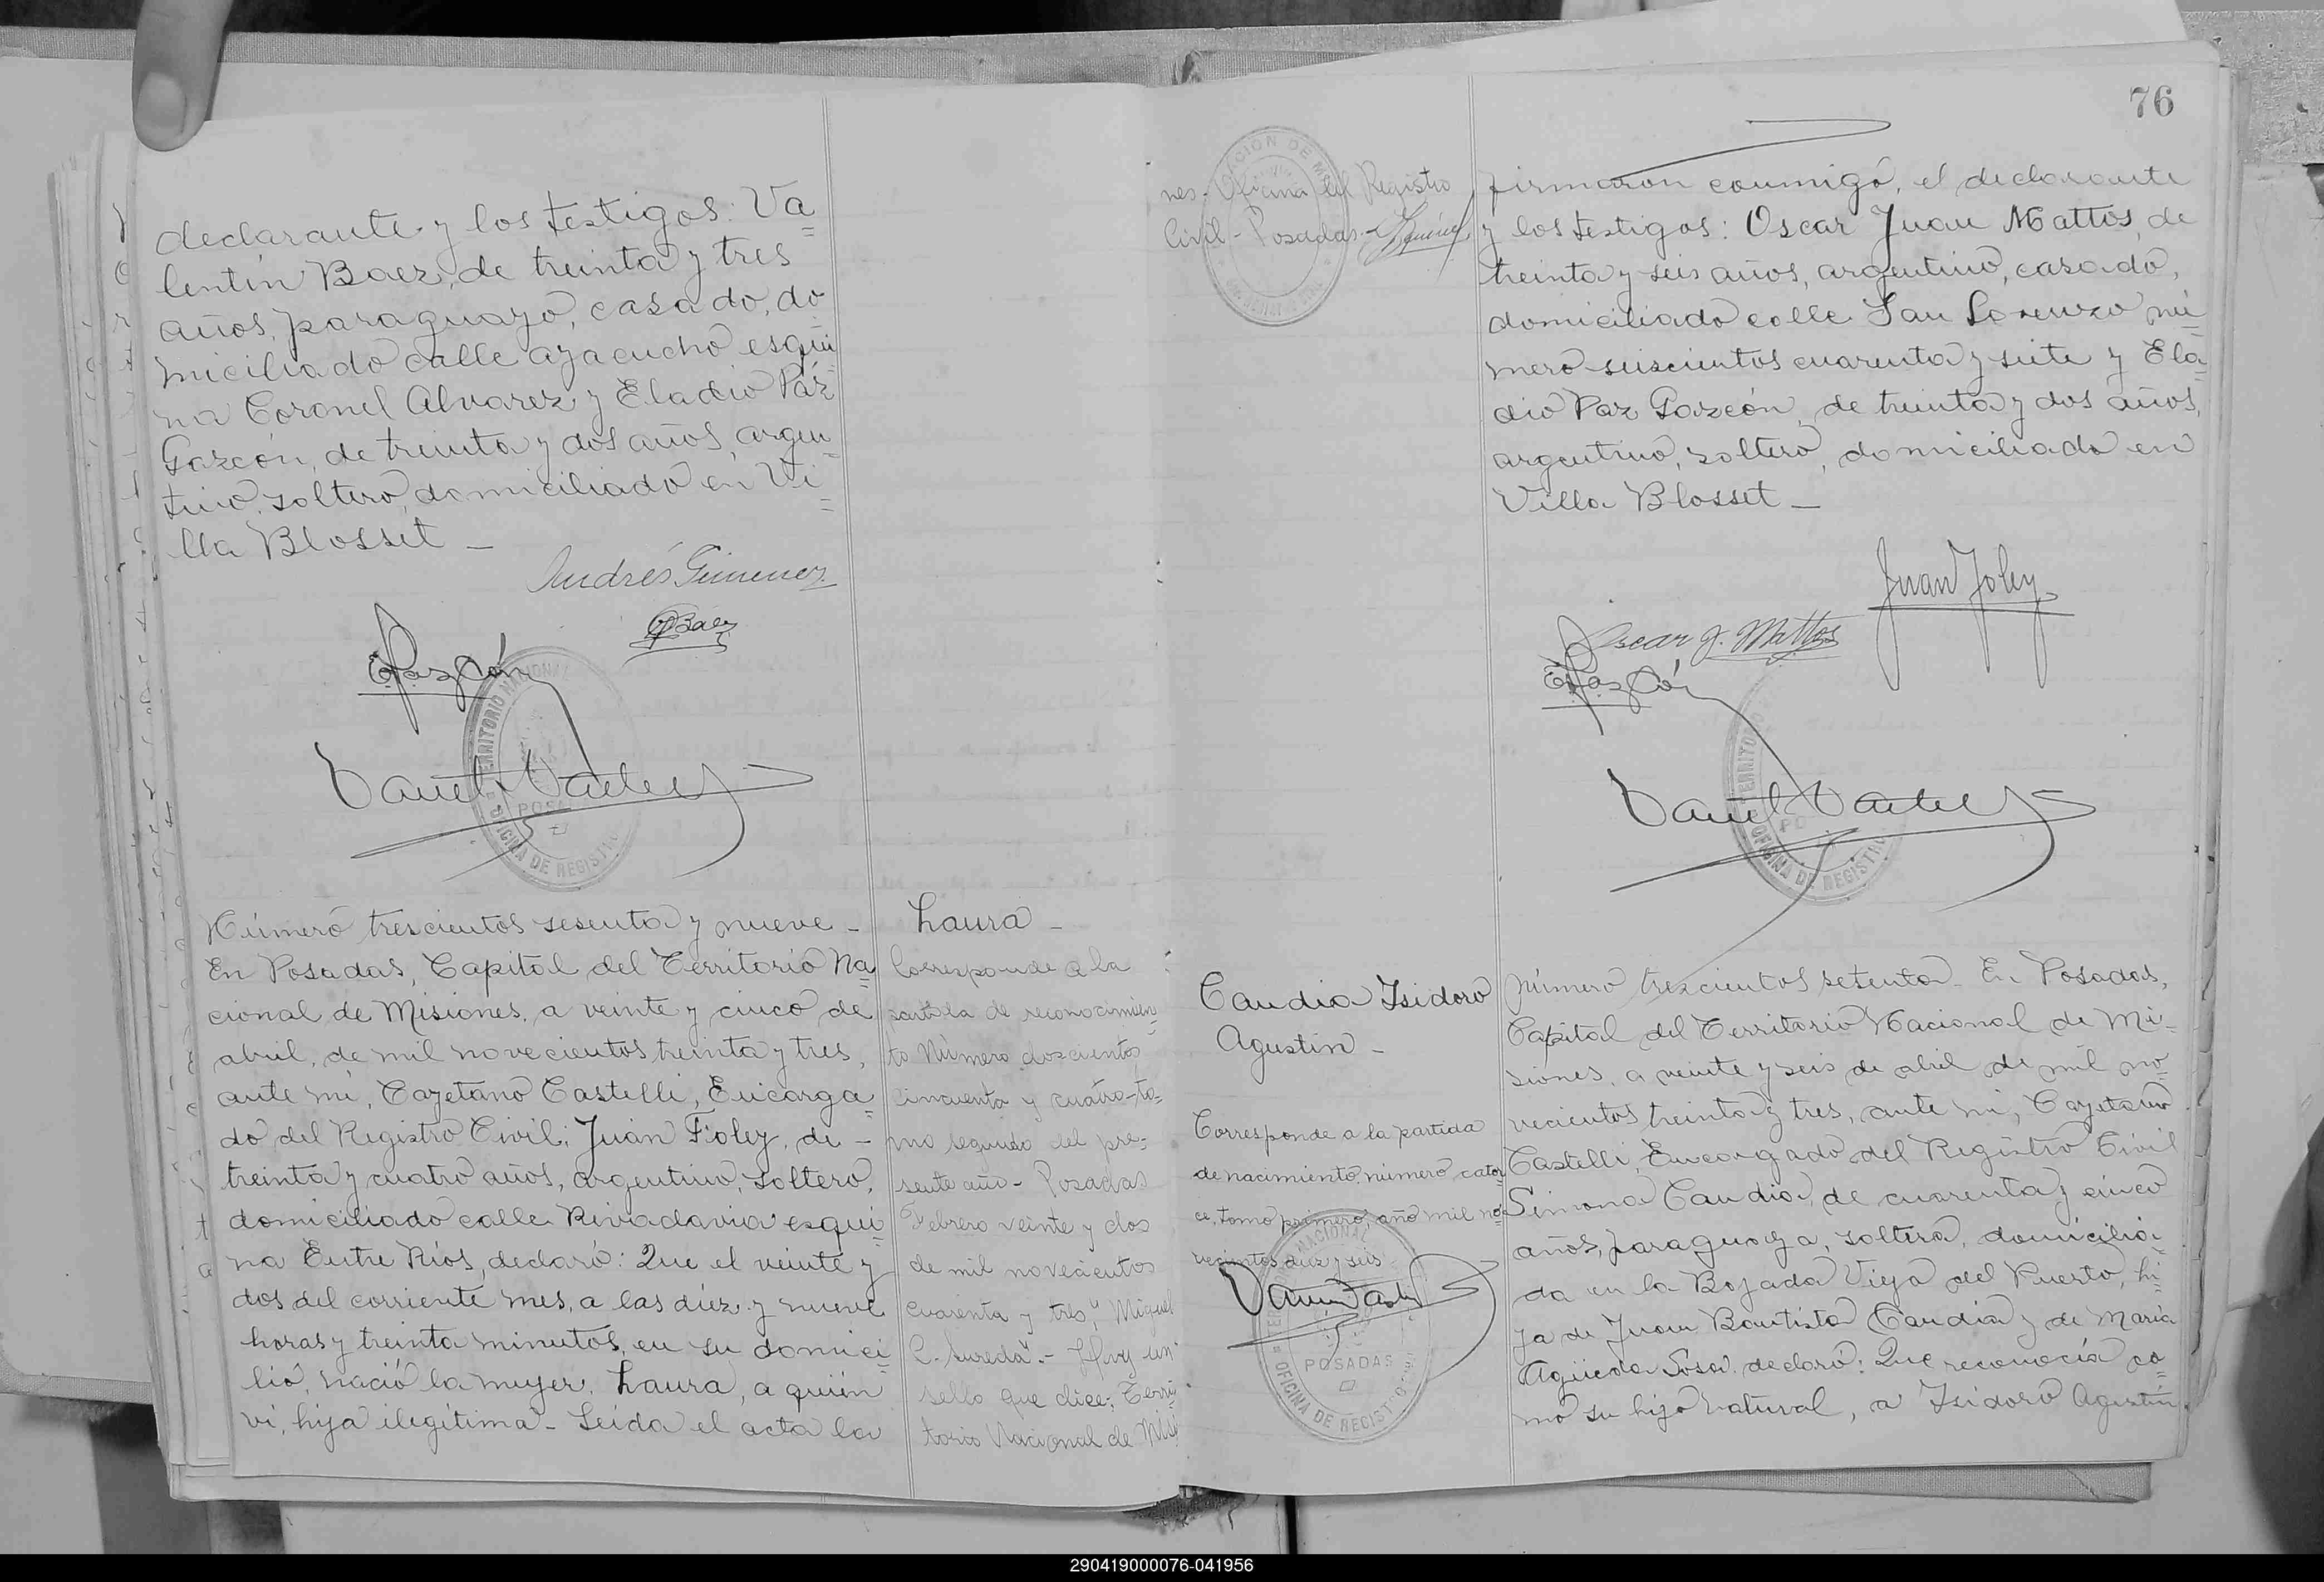 declarante y los testigos: Va=
lentín Baez, de treinta y tres
años, paraguayo, casado, do=
miciliado calle ayacucho esqui=
na Coronel Alvarez y Eladio Páz
Garzón, de treinta y dos años, argen=
tino, soltero, domiciliado en Vi=
lla Blosset -
Andrés Gimenez
Baez
TERRITORIO NACIONAL
POSADAS
OFICINA DE REGISTRO
Número trescientos sesenta y nueve -
En Posadas, Capital del Territorio Na=
cional de Misiones, a veinte y cinco de
abril, de mil novecientos treinta y tres,
ante mí, Cayetano Castelli, Encarga=
do del Registro Civil, Juan Foley, de -
treinta y cuatro años, argentino, soltero,
domiciliado calle Rivadavia esqui=
na Entre Ríos, declaró: Que el veinte y
dos del corriente mes, a las diez y nueve
horas y treinta minutos, en su domici=
lio, nació la mujer, Laura, a quién
ví, hija ilegítima - Leída el acta la
Laura -
Corresponde a la
partida de reconocimien=
to Número doscientos
cincuenta y cuatro - to=
mo segundo del pre=
sente año - Posadas
Febrero veinte y dos
de mil novecientos
cuarenta y tres, Miguel
C. Sureda - Hay un
sello que dice: Terri=
torio Nacional de Misio
76
nes - Oficina del Registro
Civil - Posadas -
firmaron conmigo, el declarante
y los testigos: Oscar Juan Mattos, de
treinta y seis años, argentino, casado,
domiciliado calle San Lorenzo nú=
mero seiscientos cuarenta y siete y Ela=
dio Paz Garzón, de treinta y dos años,
argentino, soltero, domiciliado en
Villa Blosset -
Juan Foley
Oscar J. Mattos
OFICINA DE REGISTRO
Caudia Isidoro
Agustin -
Corresponde a la partida
de nacimiento, número cator
ce, tomo primero, año mil no=
vecientos diez y seis
NACIONAL
POSADAS
OFICINA DE REGISTRO
Número trescientos setenta - En Posadas,
Capital del Territorio Nacional de Mi=
siones, a veinte y seis de abril de mil no=
vecientos treinta y tres, ante mí, Cayetano
Castelli, Encargado del Registro Civil
Simona Caudia, de cuarenta y cinco
años, paraguaya, soltera, domicilia=
da en la Bajada Vieja del Puerto, hi=
ja de Juan Bautista Caudia y de María
Agüeda Sosa, declaró: Que reconocía co=
mo su hijo natural, a Isidoro Agustín,
290419000076-041956